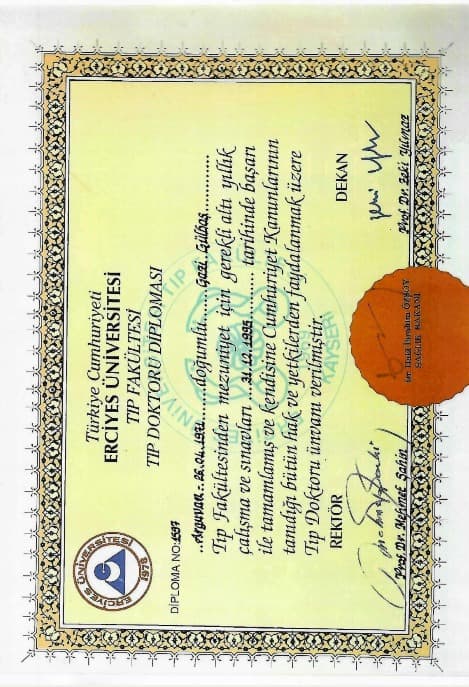 Türkiye Cumhuriyeti
ERCİYES ÜNİVERSİTESİ
TIP FAKÜLTESİ
TIP DOKTORU DİPLOMASI
ERCİYES ÜNİVERSİTESİ
1978
DİPLOMA NO:
..Arguvan.-.26.04.1971..... doğumlu.....Gazi..Gülbaş............
Tıp Fakültesinden mezuniyet için gerekli altı yıllık
çalışma ve sınavları 31.12.1995 tarihinde başarı
ile tamamlamış ve kendisine Cumhuriyet Kanunlarının
tanıdığı bütün hak ve yetkilerden faydalanmak üzere
Tıp Doktoru ünvanı verilmiştir.
REKTÖR
DEKAN
Prof. Dr. Mehmet Şahin
Prof. Dr. Zeki Yılmaz
SAĞLIK BAKANI
KAYSERİ